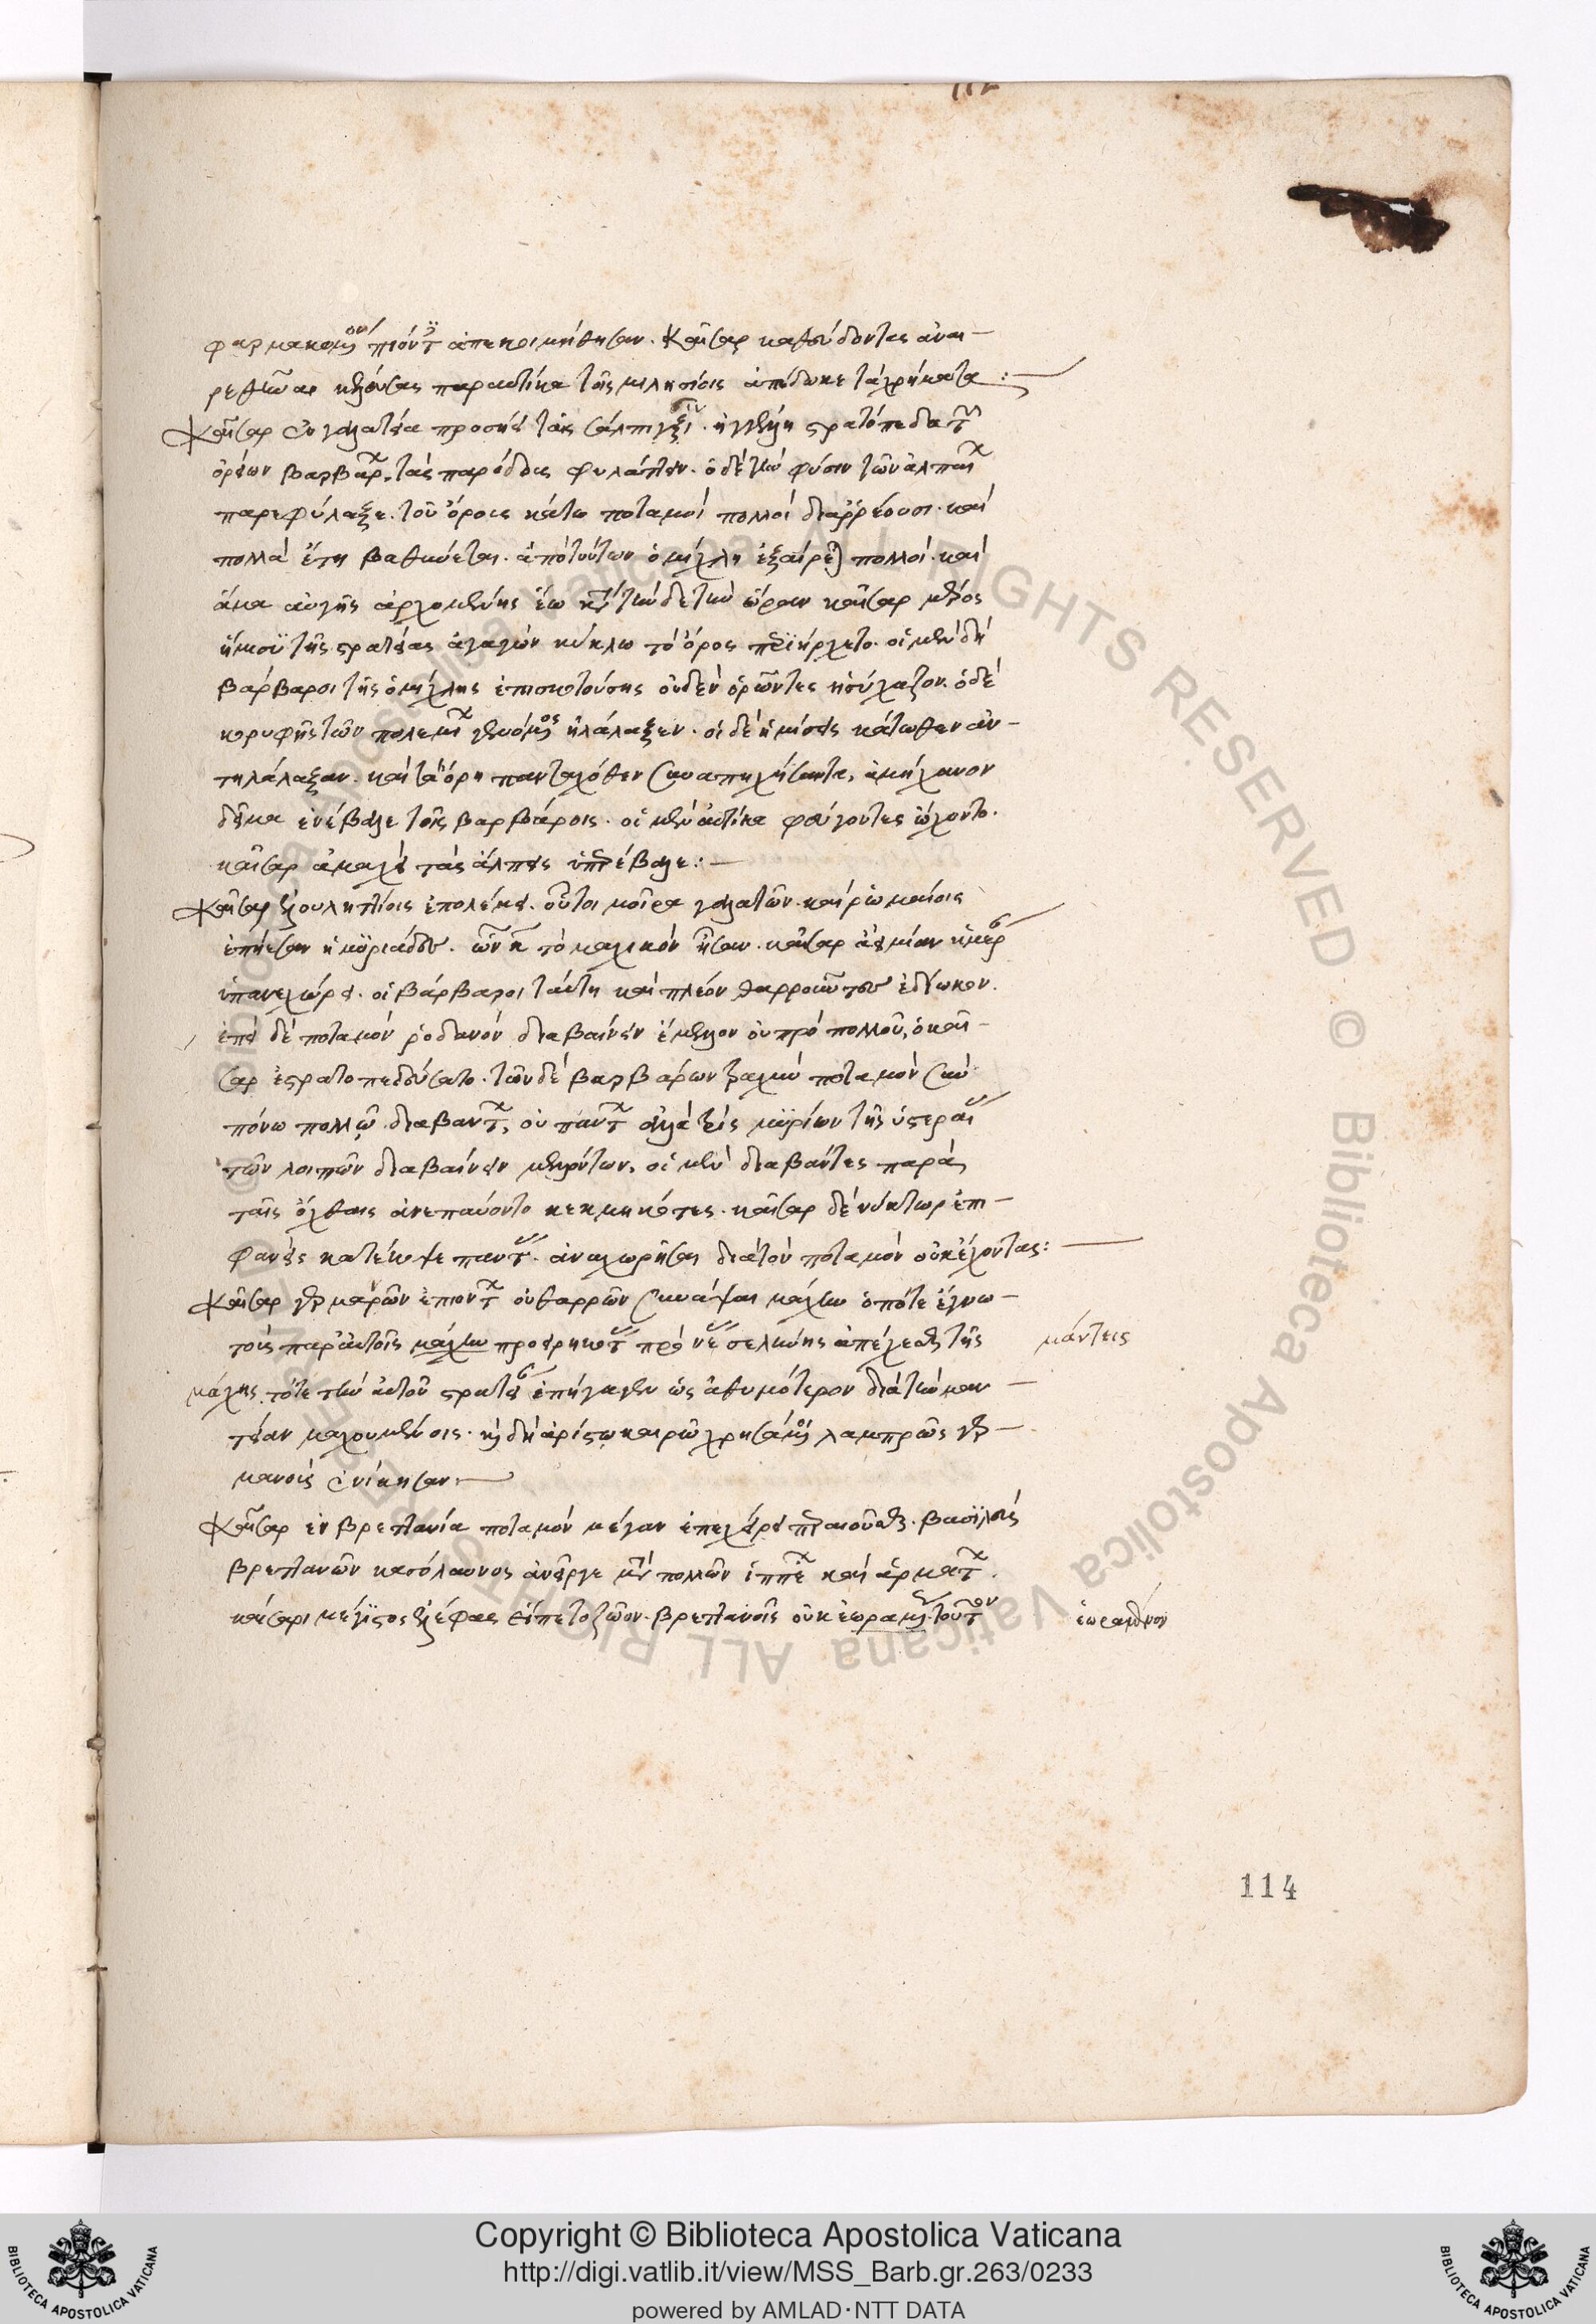 112
φαρμακωμένον πιόντες ἀπεκοιμήθησαν. Καῖσαρ καθεύδοντας ἀναι-
ρεθῆναι κελεύσας παραυτίκα τοῖς μιλησίοις ἀπέδωκε τὰ χρήματα:
Καῖσαρ ἐν γαλατία προσήει ταῖς ἄλπεσιν. ἠγγέλη στρατόπεδα τῶν
ὀρείων βαρβάρων τὰς παρόδους φυλάττειν. ὁ δὲ τὴν φύσιν τῶν ἀλπείων
παρεφύλαξε. τοῦ ὄρους κάτω ποταμοὶ πολλοὶ διαρρέουσι. καὶ
πολλὰ ἔτη βαθύνεται. ἀπὸ τούτων ὁμίχλη ἐξαίρεται πολλοί. καὶ
ἅμα αὐγῆς ἀρχομένης ἕω κατὰ τήνδε τὴν ὥραν καῖσαρ μέρος
ἥμισυ τῆς στρατείας ἀγαγὼν κύκλω τὸ ὄρος περιήρχετο. οἱ μὲν δὴ
βάρβαροι τῆς ὁμίχλης ἐπισκοτούσης οὐδὲν ὁρῶντες ἡσύχαζον. ὁ δὲ
κορυφῆς τῶν πολεμίων γενόμενος ἠλάλαξεν. οἱ δὲ ἡμίσεις κάτωθεν ἀν-
τηλάλαξαν. καὶ τὰ ὄρη πανταχόθεν συναπηχήσαντα, ἀμήχανον
δεῖμα ἐνέβαλε τοῖς βαρβάροις. οἱ μὲν αὐτίκα φεύγοντες ὤχοντο.
καῖσαρ ἀμαχεὶ τὰς ἄλπεις ὑπερέβαλε:
Καῖσαρ ἐλουηττίοις ἐπολέμει. οὗτοι μοῖρα γαλατῶν. καὶ ῥωμαίοις
ἐπήεσαν η μυριάδες. ὧν κ τὸ μαχικὸν ἦσαν. καῖσαρ ἀεὶ μίαν ἡμέραν
ὑπανεχώρει. οἱ βάρβαροι ταύτη καὶ πλέον θαρροῦντες ἐδίωκον.
ἐπεὶ δὲ ποταμὸν ῥοδανὸν διαβαίνειν ἔμελλον οὐ πρὸ πολλοῦ, ὁ καῖ-
σαρ ἐστρατοπεδεύσατο. τῶν δὲ βαρβάρων τραχὺν ποταμὸν σὺν
πόνω πολλῷ διαβάντων, οὐ πάντων ἀλλὰ τρεῖς μυρίων τῆς ὑστεραίας
τῶν λοιπῶν διαβαίνειν μελλόντων, οἱ μὲν διαβάντες παρὰ
ταῖς ὄχθαις ἀνεπαύοντο κεκμηκότες. καῖσαρ δὲ νύκτωρ ἐπι-
φανεὶς κατέκοψε πάντας. ἀναχωρῆσαι διὰ τὸν πόταμον οὐκ ἔχοντας:
Καῖσαρ γερμανῶν ἐπιόντων οὐ θαρρῶν συνάψαι μάχην ὁπότε ἔγνω
τοὺς παρ' αὐτοῖς μάχην προειρηκότας πρὸ νέας σελήνης ἀπέχεσθαι τῆς
μάντεις
μάχης τότε τὴν αὐτοῦ στρατείαν ἐπήγαγεν ὡς ἀθυμότερον διὰ τὴν μαν-
τείαν μαχουμένοις. καὶ δὴ ἀρίστω καιρῶ χρησάμενοι λαμπρῶς γερ-
μανοὺς ἐνίκησαν:
Καῖσαρ ἐν βρεττανία ποταμὸν μέγαν ἐπεχείρει περαιοῦσθαι. βασιλεὺς
βρεττανῶν κασόλαυνος ἀνεῖργε μετὰ πολλῶν ἱππέων καὶ ἁρμάτων.
καίσαρι μέγιστος ἐλέφας εἵπετο ζῶον. βρεττανοῖς οὐκ ἑωραμένοις τοῦτον
ἑωραμένον
114
Copyright © Biblioteca Apostolica Vaticana
http://digi.vatlib.it/view/MSS_Barb.gr.263/0233
powered by AMLAD·NTT DATA